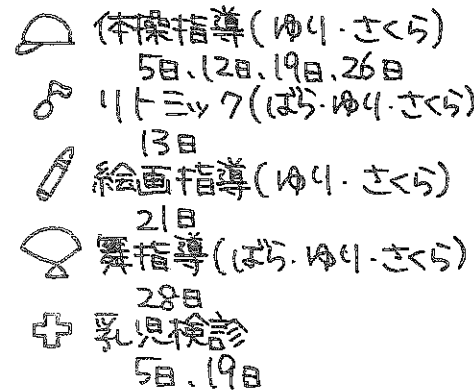 体操指導(ゆり・さくら)
5日、12日、19日、26日
リトミック(ばら・ゆり・さくら)
13日
絵画指導(ゆり・さくら)
21日
舞指導(ばら・ゆり・さくら)
28日
乳児検診
5日、19日